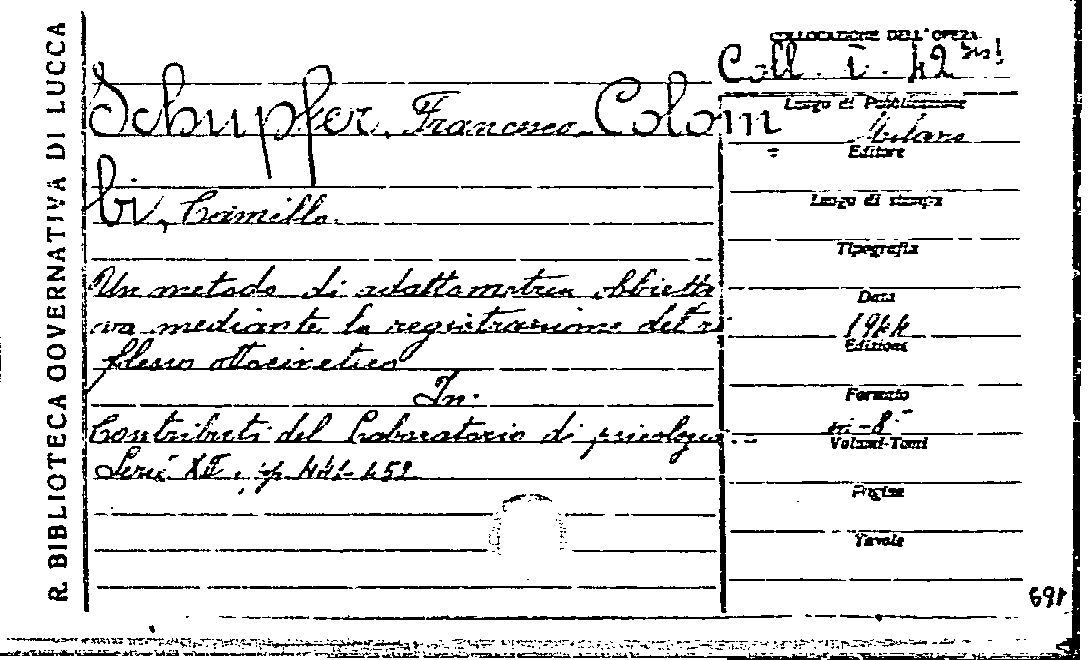 R. BIBLIOTECA GOVERNATIVA DI LUCCA
COLLOCAZIONE DELL'OPERA
Coll. I. 42
Schupfer, Francesco - Colom
bi, Camillo.
Un metodo di adattometria obbietti
va mediante la registrazione del ri
flesso ottocinetico
In:
Contributi del Laboratorio di psicologia.-
Serie XII, p. 441-452
Luogo di Pubblicazione
Milano
Editore
Luogo di stampa
Tipografia
Data
1944
Edizione
Formato
in-8°
Volumi-Tomi
Pagine
Tavole